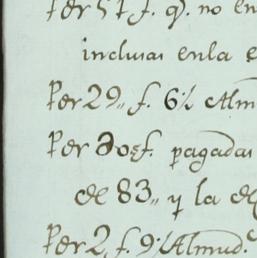 Per 57 f. q. no en
inclusas enla e
Per 29,, f. 6½ Alm
Per dos f. pagadas
de 83,, y la de
Per 2, f. 9½ Almud.s